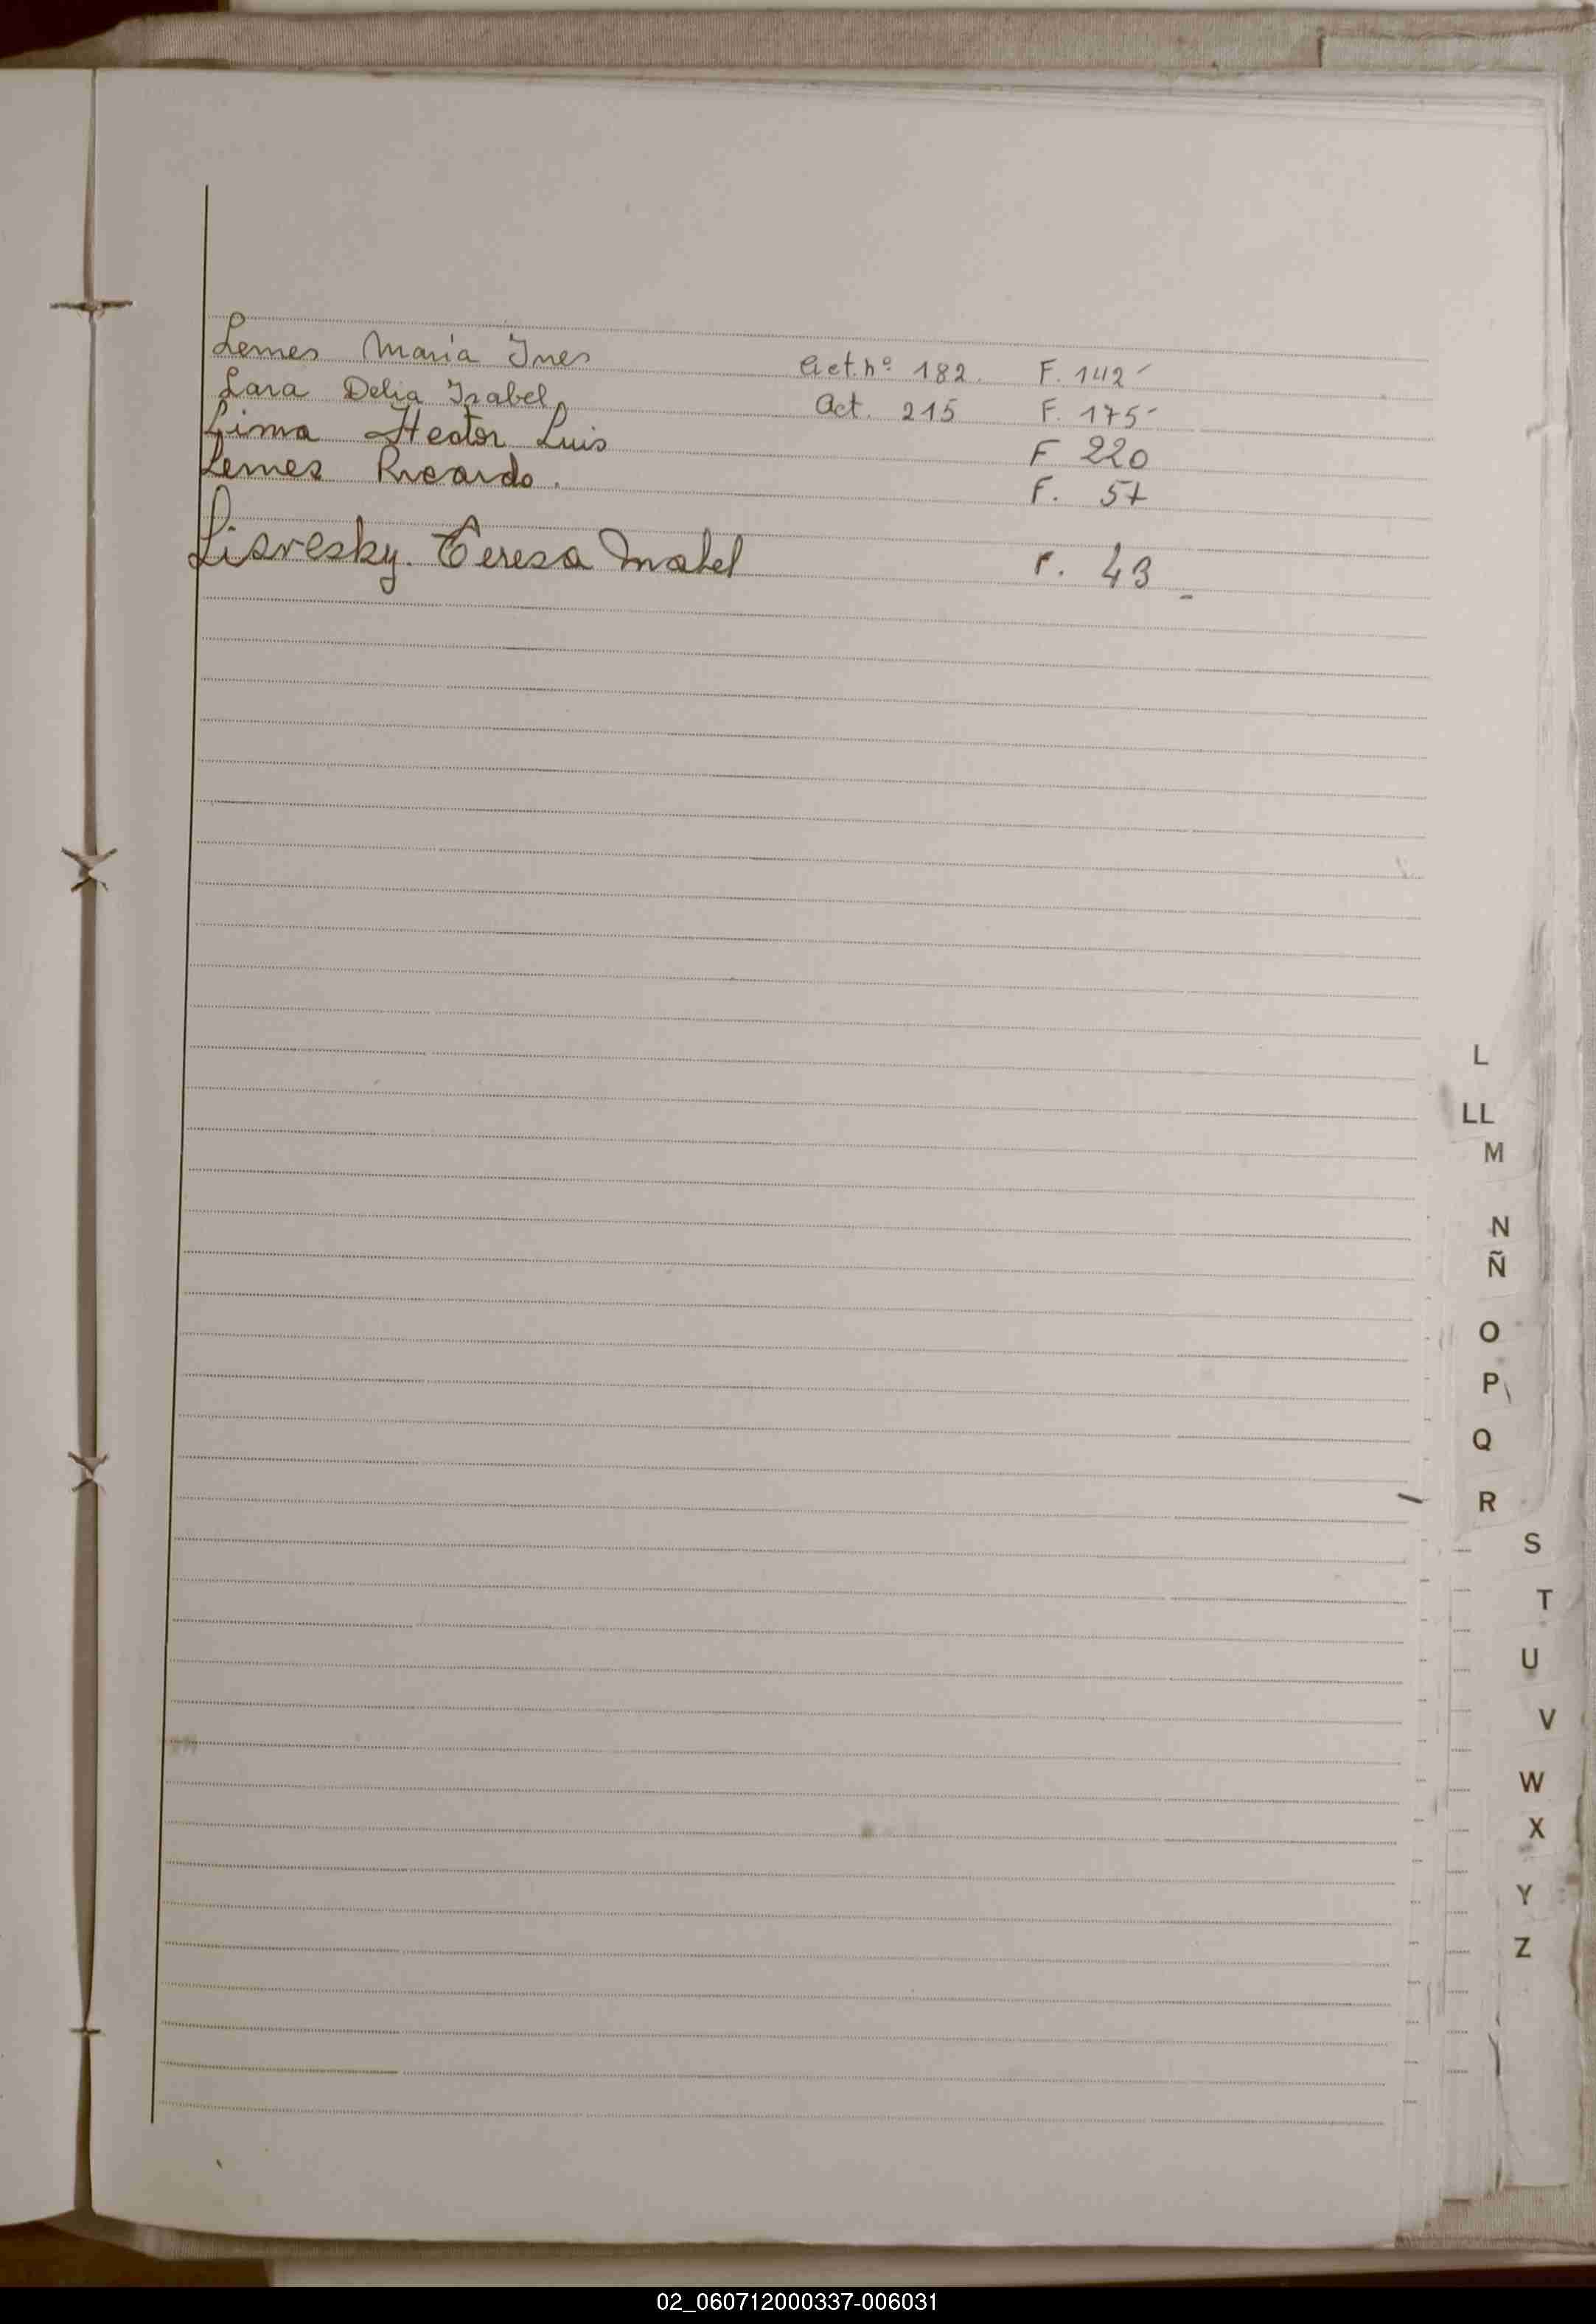 Lemes Maria Ines Act. nº 182. F. 142-
Lara Delia Isabel Act. 215 F. 175-
Lima Hector Luis F 220
Lemes Ricardo. F. 57
Lisvesky. Teresa Mabel F. 43 -
L
LL
M
N
Ñ
O
P
Q
R
S
T
U
V
W
X
Y
Z
02_060712000337-006031